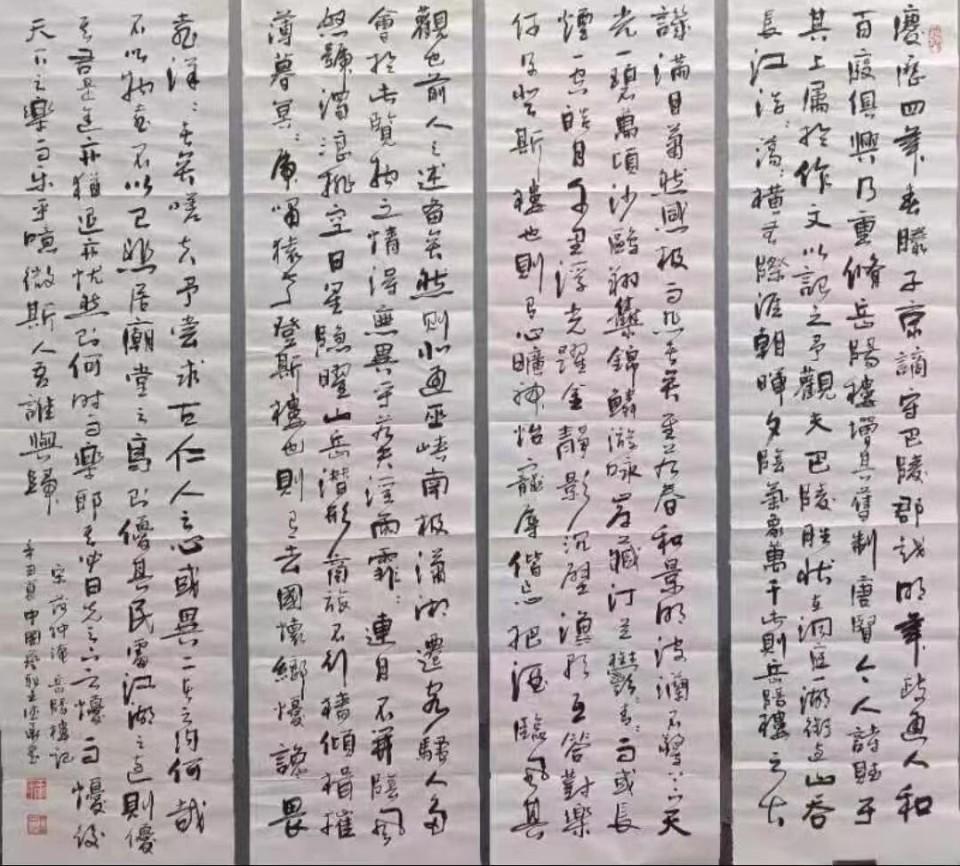 慶曆四年春滕子京謫守巴陵郡越明年政通人和
百廢俱興乃重脩岳陽樓增其舊制唐賢今人詩賦于
其上屬於作文以記之予觀夫巴陵勝狀在洞庭一湖銜遠山吞
長江浩〻湯〻橫無際涯朝暉夕陰氣象萬千此則岳陽樓之大
譏滿目蕭然感極而悲者矣至若春和景明波瀾不驚上下天
光一碧萬頃沙鷗翔集錦鱗游泳岸芷汀蘭鬱〻青〻而或長
煙一空皓月千里浮光躍金靜影沉璧漁歌互答對樂
何及登斯樓也則有心曠神怡寵辱偕忘把酒臨風其
觀也前人之述備矣然則北通巫峽南極瀟湘遷客騷人多
會於此覽物之情得無異乎若夫淫雨霏〻連月不開陰風
怒號濁浪排空日星隱曜山岳潛形商旅不行檣傾楫摧
薄暮冥〻虎嘯猿啼登斯樓也則有去國懷鄉憂讒畏
喜洋〻者矣嗟夫予嘗求古仁人之心或異二者之為何哉
不以物喜不以己悲居廟堂之高則憂其民處江湖之遠則憂
其君是進亦憂退亦憂然則何時而樂耶其必曰先天下之憂而憂後
天下之樂而樂乎噫微斯人吾誰與歸
宋范仲淹岳陽樓記
辛丑夏中國